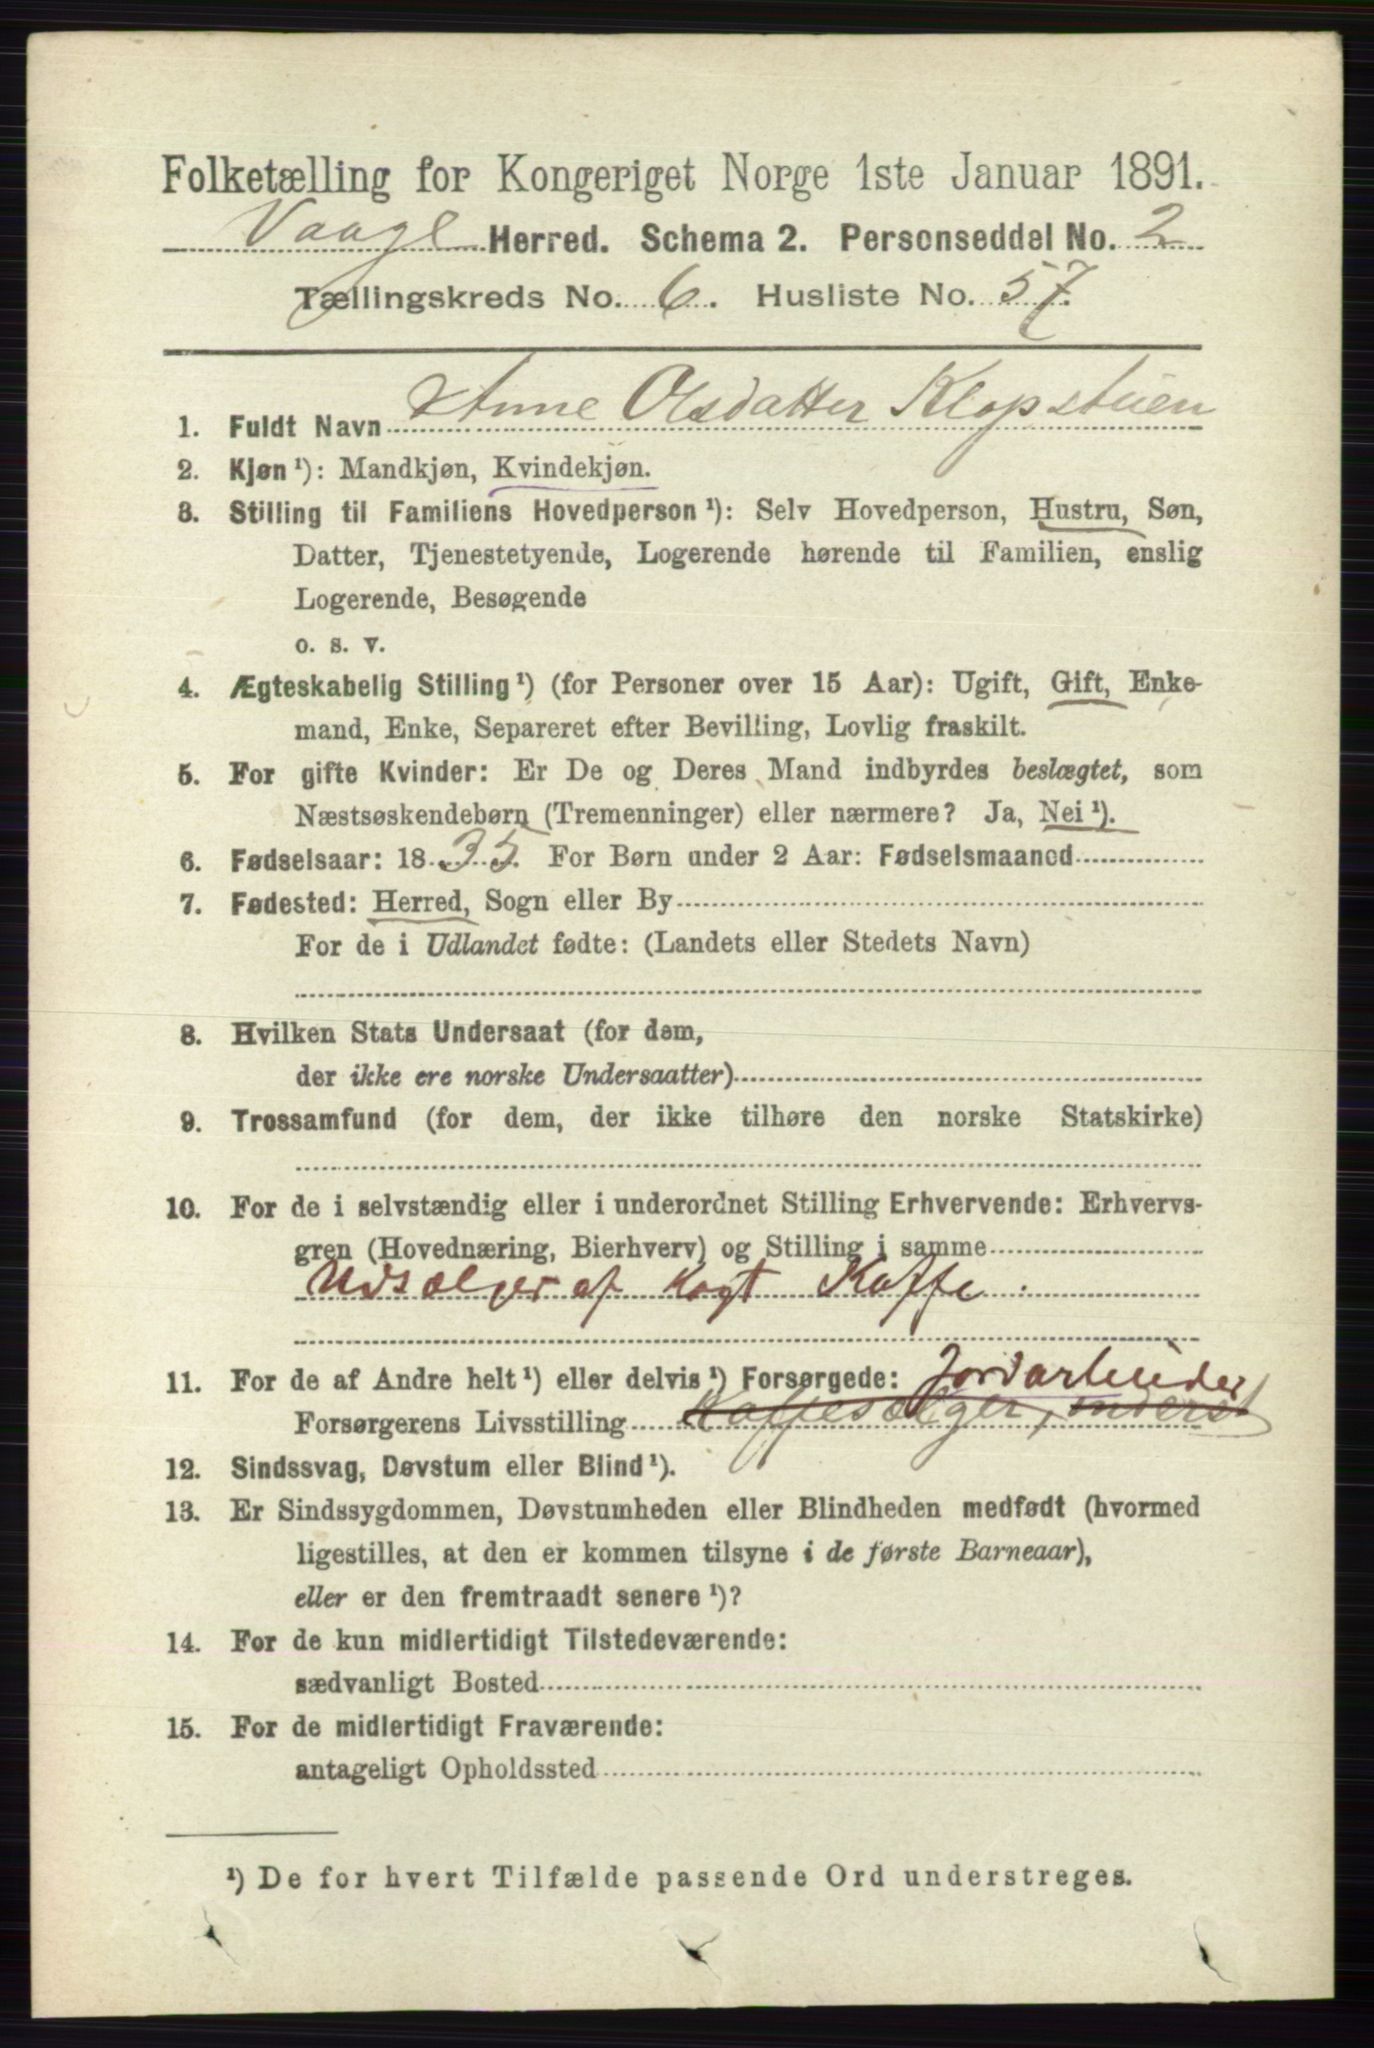 Folketælling for Kongeriget Norge 1ste Januar 1891.
Vaage Herred. Schema 2. Personseddel No. 2
Tællingskreds No. 6. Husliste No. 57.
1. Fuldt Navn Anne Olsdatter Klopstuen
2. Kjøn ¹): Mandkjøn, Kvindekjøn.
3. Stilling til Familiens Hovedperson ¹): Selv Hovedperson, Hustru, Søn,
Datter, Tjenestetyende, Logerende hørende til Familien, enslig
Logerende, Besøgende
o. s. v.
4. Ægteskabelig Stilling ¹) (for Personer over 15 Aar): Ugift, Gift, Enke-
mand, Enke, Separeret efter Bevilling, Lovlig fraskilt.
5. For gifte Kvinder: Er De og Deres Mand indbyrdes beslægtet, som
Næstsøskendebørn (Tremenninger) eller nærmere? Ja, Nei ¹).
6. Fødselsaar: 1835. For Børn under 2 Aar: Fødselsmaaned
7. Fødested: Herred, Sogn eller By
For de i Udlandet fødte: (Landets eller Stedets Navn)
8. Hvilken Stats Undersaat (for dem,
der ikke ere norske Undersaatter)
9. Trossamfund (for dem, der ikke tilhøre den norske Statskirke)
10. For de i selvstændig eller i underordnet Stilling Erhvervende: Erhvervs-
gren (Hovednæring, Bierhverv) og Stilling i samme
Udsælger af kogt Kaffe.
11. For de af Andre helt ¹) eller delvis ¹) Forsørgede: Jordarbeider
Forsørgerens Livsstilling Kaffesælger, inderst
12. Sindssvag, Døvstum eller Blind ¹).
13. Er Sindssygdommen, Døvstumheden eller Blindheden medfødt (hvormed
ligestilles, at den er kommen tilsyne i de første Barneaar),
eller er den fremtraadt senere ¹)?
14. For de kun midlertidigt Tilstedeværende:
sædvanligt Bosted
15. For de midlertidigt Fraværende:
antageligt Opholdssted
¹) De for hvert Tilfælde passende Ord understreges.